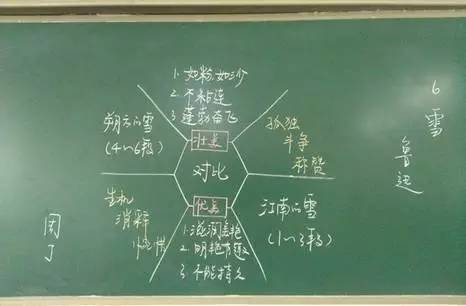 6 雪
鲁迅
1. 如粉，如沙
2. 不粘连
3. 蓬勃奋飞
朔方的雪
(4~6段)
壮美
孤独
斗争
称赞
对比
生机
消释
优美
江南的雪
(1~3段)
1. 滋润美艳
2. 明艳有趣
3. 不能持久
周
丁